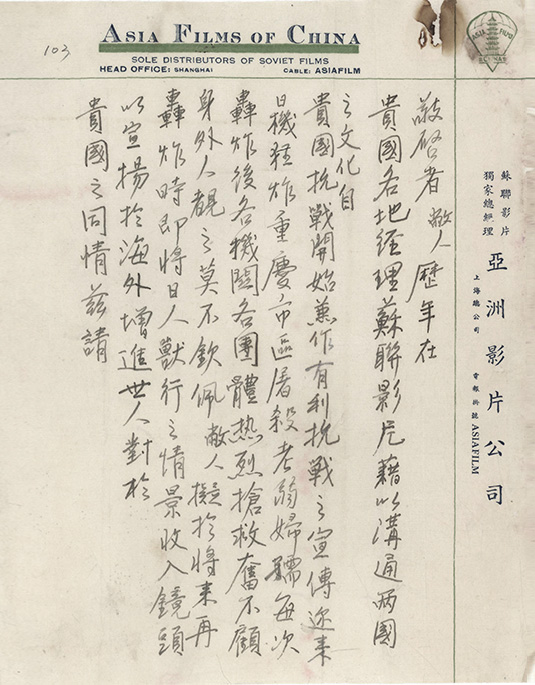 103
ASIA FILMS OF CHINA
SOLE DISTRIBUTORS OF SOVIET FILMS
HEAD OFFICE: SHANGHAI CABLE: ASIAFILM
ASIA FILMS
蘇聯影片
獨家總經理
亞洲影片公司
上海總公司
電報掛號 ASIAFILM
敬啓者敝人歷年在
貴國各地經理蘇聯影片藉以溝通两國
之文化自
貴國抗戰開始兼作有利抗戰之宣傳近来
日機狂炸重慶市區屠殺老弱婦孺每次
轟炸後各機関各團體热烈搶救奮不顧
身外人觀之莫不欽佩敝人擬於將来再
轟炸時即將日人獸行之情景收入鏡頭
以宣揚於海外增進世人對於
貴國之同情兹請